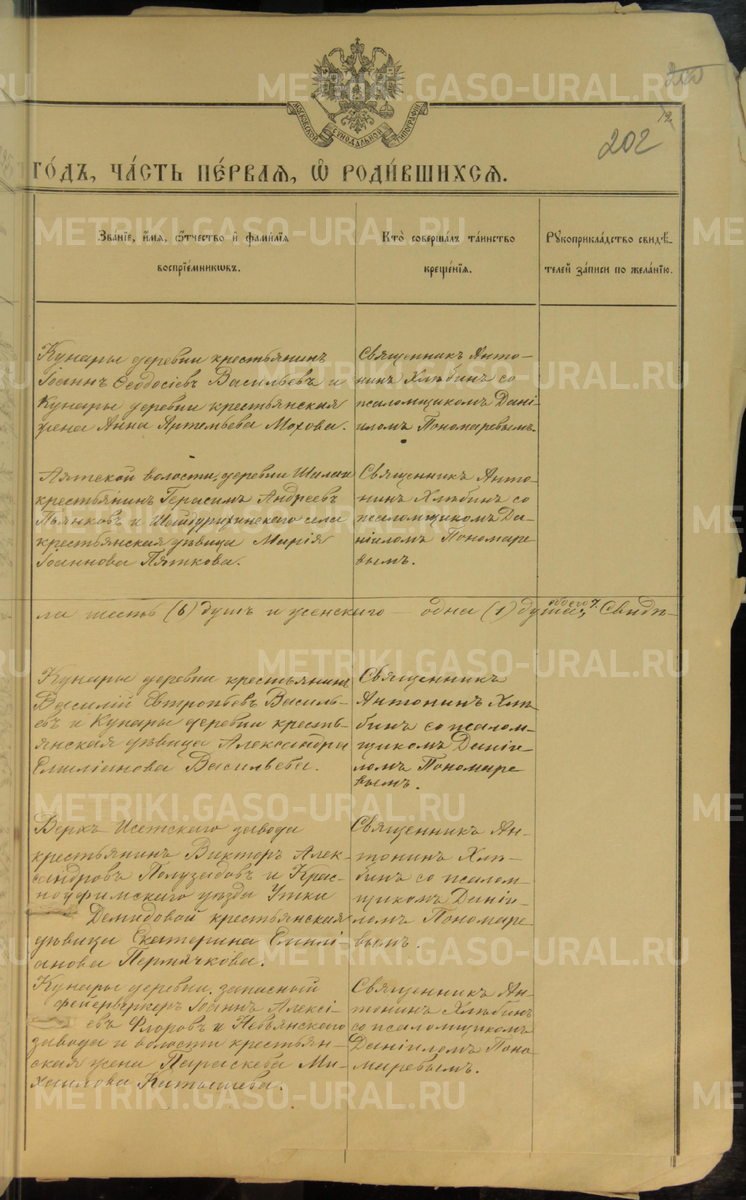 200
12
202
МОСКОВСКОЙ СУНОДАЛЬНОЙ ТИПОГРАФІИ
ГО́ДЪ, ЧА́СТЬ ПЕ́РВАЯ, Ѡ҆ РОДИ́ВШИХСЯ.
Зва́ніе, и҆́мя, ѻ҆́тчество и҆ фами́лія
воспріе́мникѡвъ.
Кто̀ соверша́лъ та́инство
креще́нія.
Рꙋкоприкла́дство свидѣ́-
телей за́писи по жела́нію.
Кунары деревни крестьянинъ
Іоаннъ Ѳеодосіевъ Васильевъ и
Кунары деревни крестьянская
жена Анна Артемьева Мохова.
Священникъ Анто-
нинъ Хлѣбинъ со
псаломщикомъ Дані-
иломъ Пономаревымъ.
Аятской волости, деревни
крестьянинъ Герасимъ Андреевъ
Пьянковъ и Шайдурихинскаго села
крестьянская дѣвица Марія
Іоаннова Пяткова.
Священникъ Анто-
нинъ Хлѣбинъ со
псаломщикомъ Да-
ніиломъ Пономаре-
вымъ.
ла шесть (6) душъ и женскаго — одна (1) душа, всего 7. Свидѣ-
Кунары деревни крестьянинъ
Василій Евтропіевъ Василь-
евъ и Кунары деревни кресть-
янская дѣвица Александра
Емиліанова Васильева.
Священникъ
Антонинъ Хлѣ-
бинъ со псалом-
щикомъ Даніи-
ломъ Пономаре-
вымъ.
Верхъ Исетскаго завода
крестьянинъ Викторъ Алек-
сандровъ Полузадовъ и Крас-
ноуфимскаго уѣзда Утки
Демидовой крестьянская
дѣвица Екатерина Емилі-
анова Пермячкова.
Священникъ Ан-
тонинъ Хлѣ-
бинъ со псалом-
щикомъ Даніи-
ломъ Пономаре-
вымъ.
Кунары деревни, запасный
фейерверкеръ Іоаннъ Алексі-
евъ Флоровъ и Невьянскаго
завода и волости крестьян-
ская жена Параскева Ми-
хаилова
Священникъ Ан-
тонинъ Хлѣбинъ
со псаломщикомъ
Даніиломъ Поно-
маревымъ.
METRIKI.GASO-URAL.RU